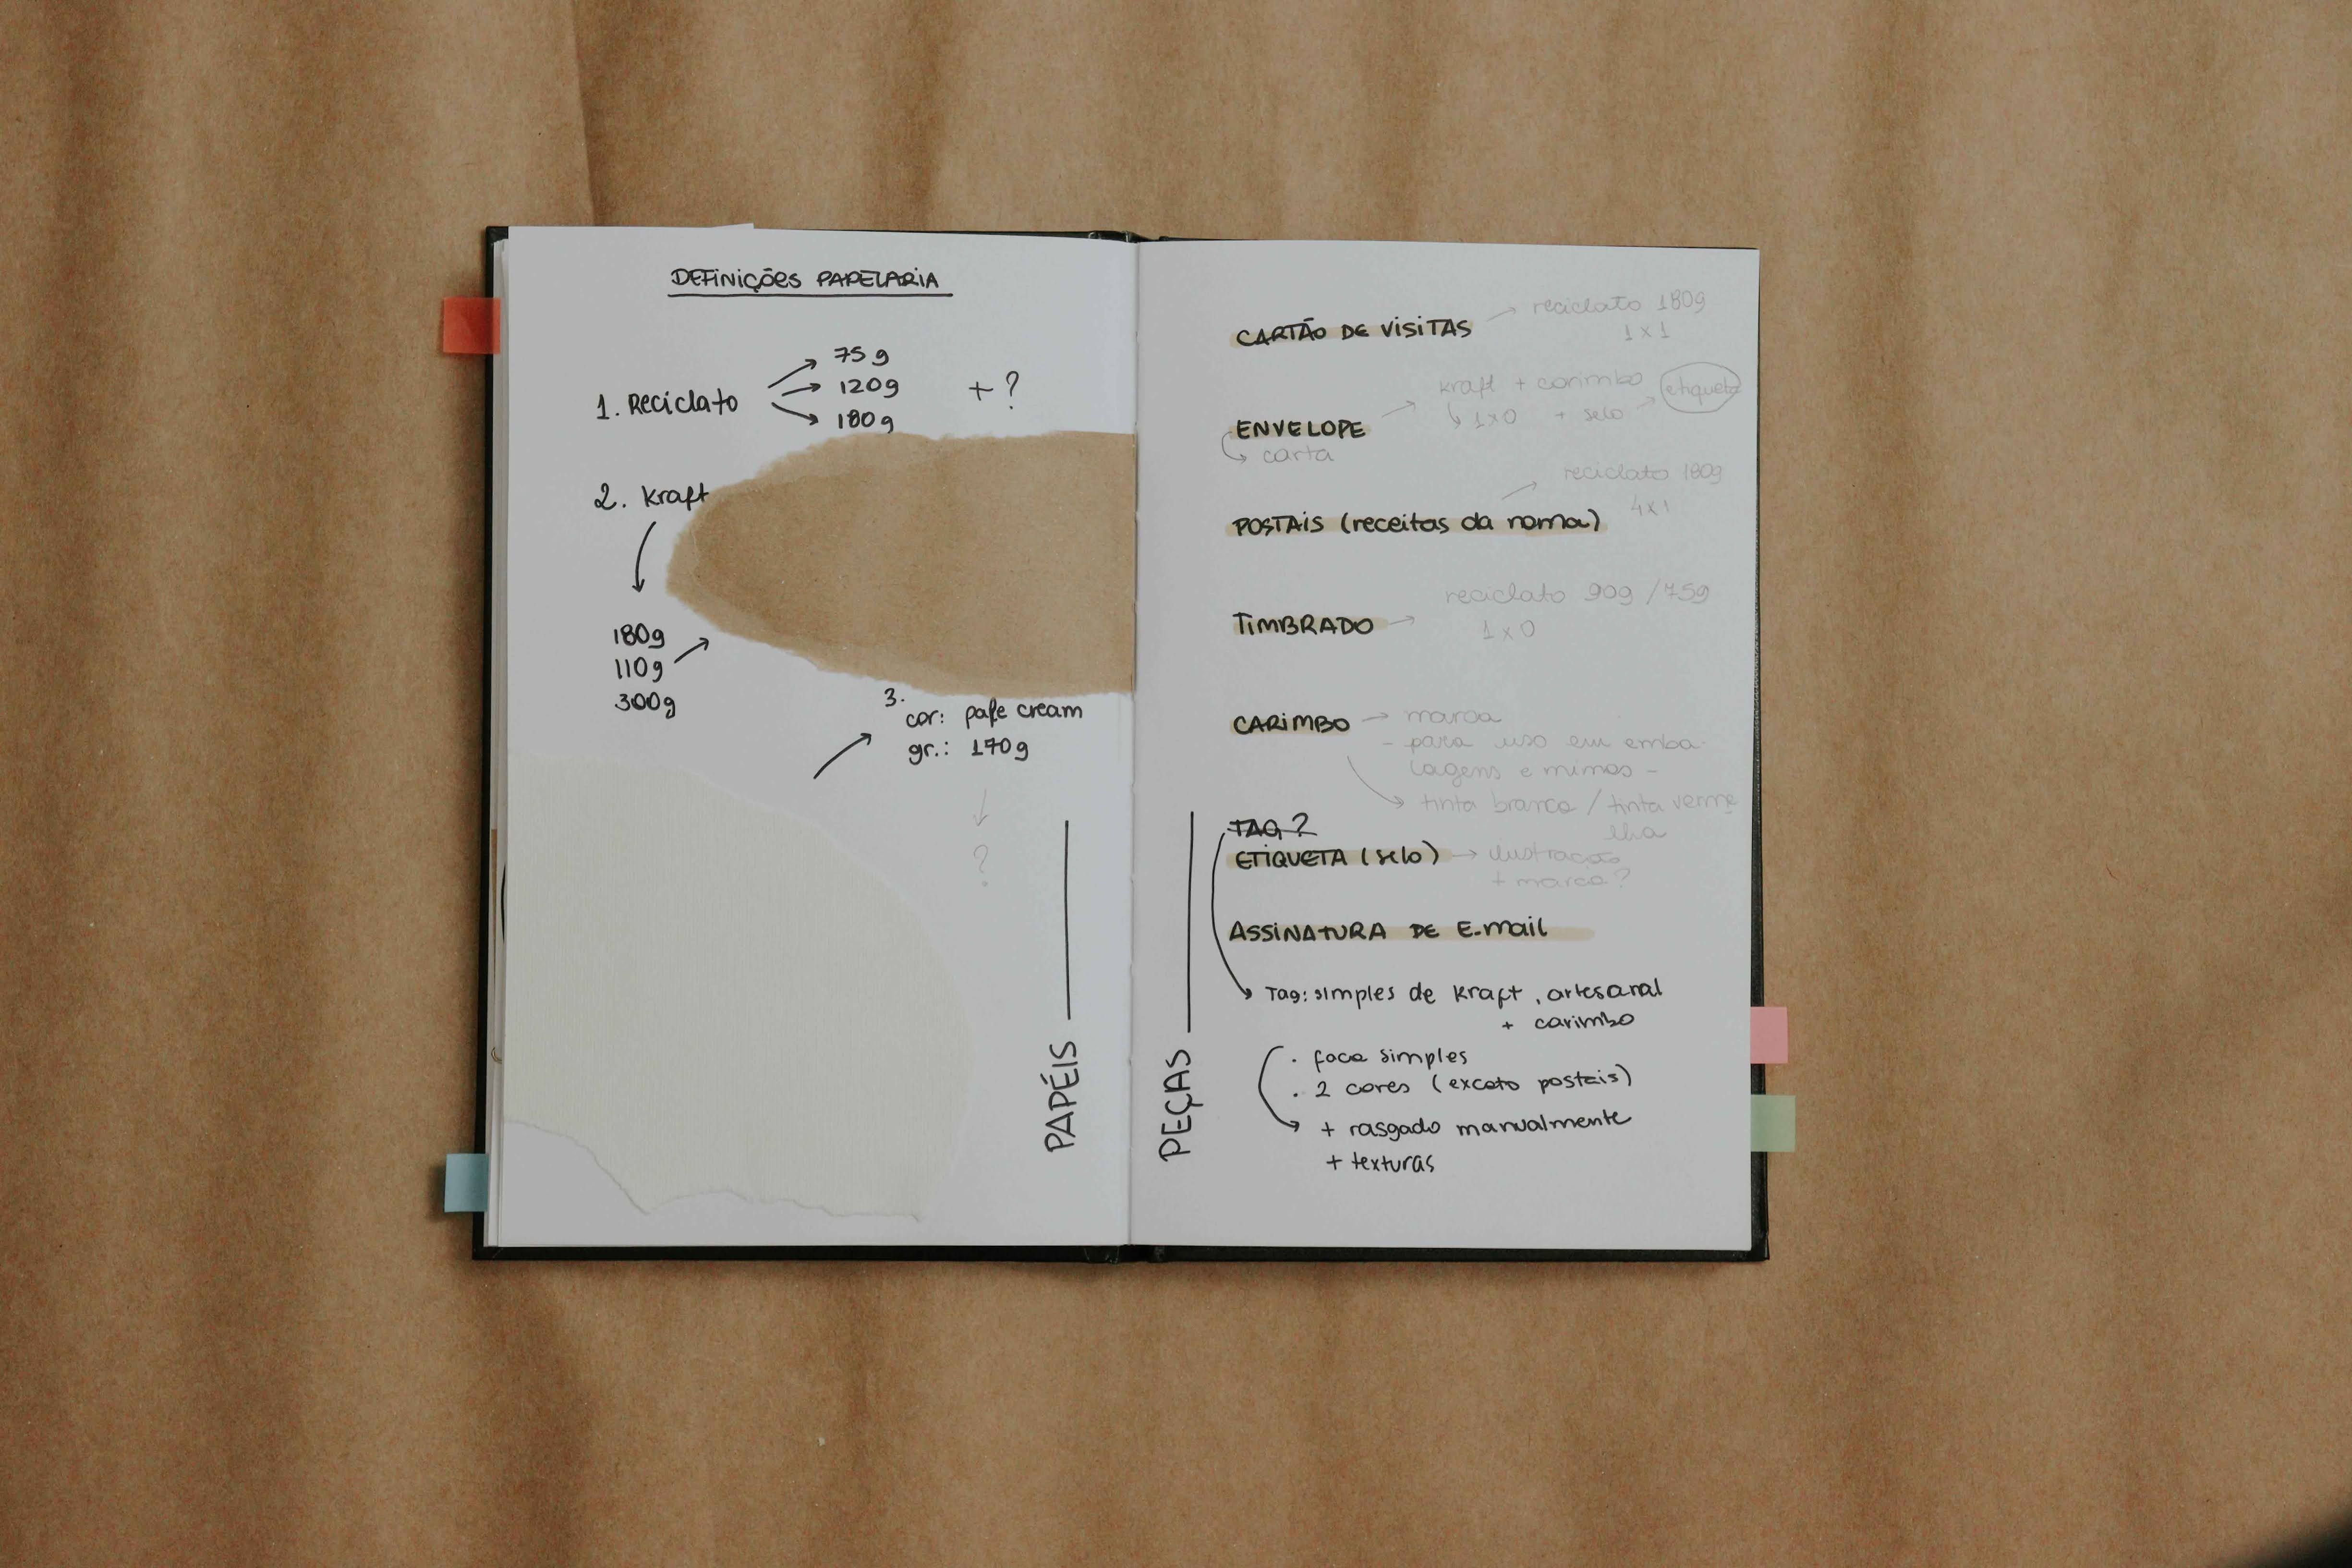 DEFINIÇÕES PAPELARIA
1. Reciclato
75g
120g
180g
+ ?
2. Kraft
180g
110g
300g
3.
cor: pale cream
gr.: 170g
?
PAPÉIS
PEÇAS
CARTÃO DE VISITAS
reciclato 180g
1x1
ENVELOPE
carta
kraft + carimbo
1x0 + selo
etiqueta
POSTAIS (receitas da noma)
reciclato 180g
4x1
TIMBRADO
reciclato 90g / 75g
1x0
CARIMBO
marca
- para uso em emba-
lagens e mimos -
tinta branca / tinta verme
lha
TAG?
ETIQUETA (selo)
ilustração
+ marca?
ASSINATURA DE E-mail
Tag: simples de kraft, artesanal
+ carimbo
. faca simples
. 2 cores (exceto postais)
+ rasgado manualmente
+ texturas